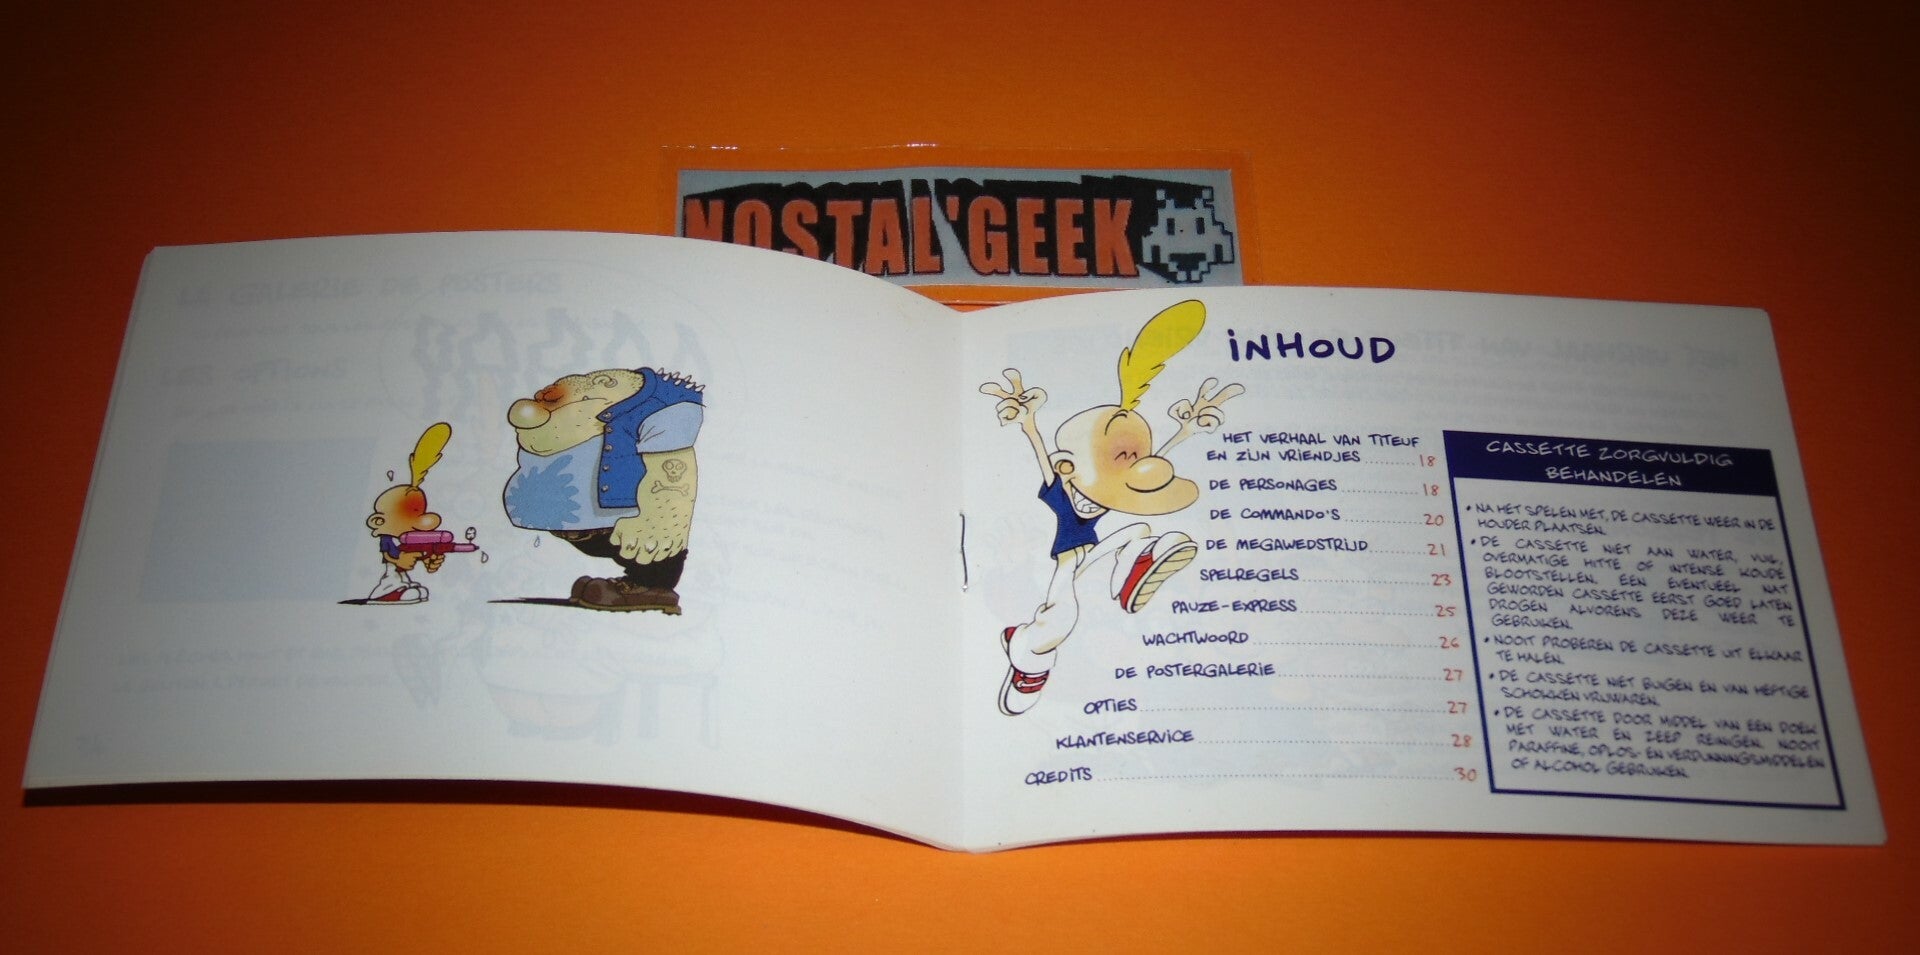 NOSTAL'GEEK
LA GALERIE DE POSTERS
LES OPTIONS
INHOUD
HET VERHAAL VAN TITEUF
EN ZIJN VRIENDJES 18
DE PERSONAGES 18
DE COMMANDO'S 20
DE MEGAWEDSTRIJD 21
SPELREGELS 23
PAUZE-EXPRESS 25
WACHTWOORD 26
DE POSTERGALERIE 27
OPTIES 27
KLANTENSERVICE 28
CREDITS 30
CASSETTE ZORGVULDIG
BEHANDELEN
• NA HET SPELEN MET, DE CASSETTE WEER IN DE
HOUDER PLAATSEN.
• DE CASSETTE NIET AAN WATER, VUIL,
OVERMATIGE HITTE OF INTENSE KOUDE
BLOOTSTELLEN. EEN EVENTUEEL NAT
GEWORDEN CASSETTE EERST GOED LATEN
DROGEN ALVORENS DEZE WEER TE
GEBRUIKEN.
• NOOIT PROBEREN DE CASSETTE UIT ELKAAR
TE HALEN.
• DE CASSETTE NIET BUIGEN EN VAN HEFTIGE
SCHOKKEN VRIJWAREN.
• DE CASSETTE DOOR MIDDEL VAN EEN DOEK
MET WATER EN ZEEP REINIGEN. NOOIT
PARAFFINE, OPLOS- EN VERDUNNINGSMIDDELEN
OF ALCOHOL GEBRUIKEN.